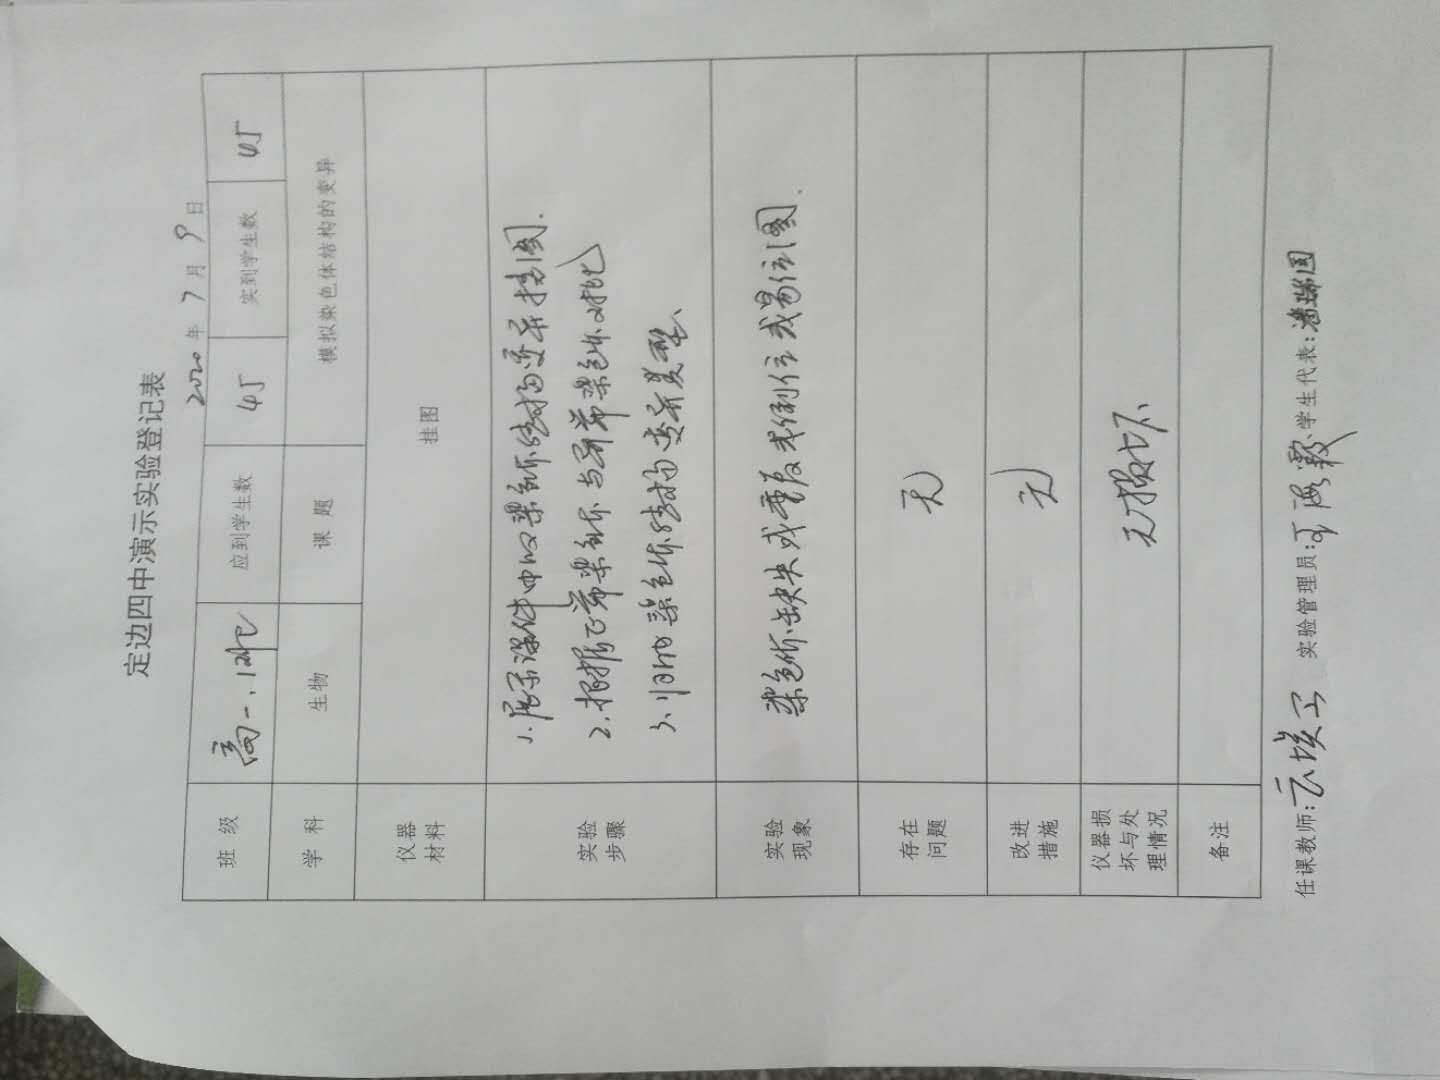 定边四中演示实验登记表
2020年 7月 9日
班 级 高一.12班 应到学生数 45 实到学生数 45
学 科 生物 课 题 模拟染色体结构的变异
仪器材料 挂图
实验步骤 1.展示课件中的染色体结构变异挂图.
2.根据正常染色体与异常染色体对比
3.归纳染色体结构变异类型.
实验现象 染色体缺失或重复或倒位或易位图.
存在问题 无
改进措施 无
仪器损坏与处理情况 无损坏
备注
任课教师: 实验管理员:王 霞 学生代表:潘瑞国